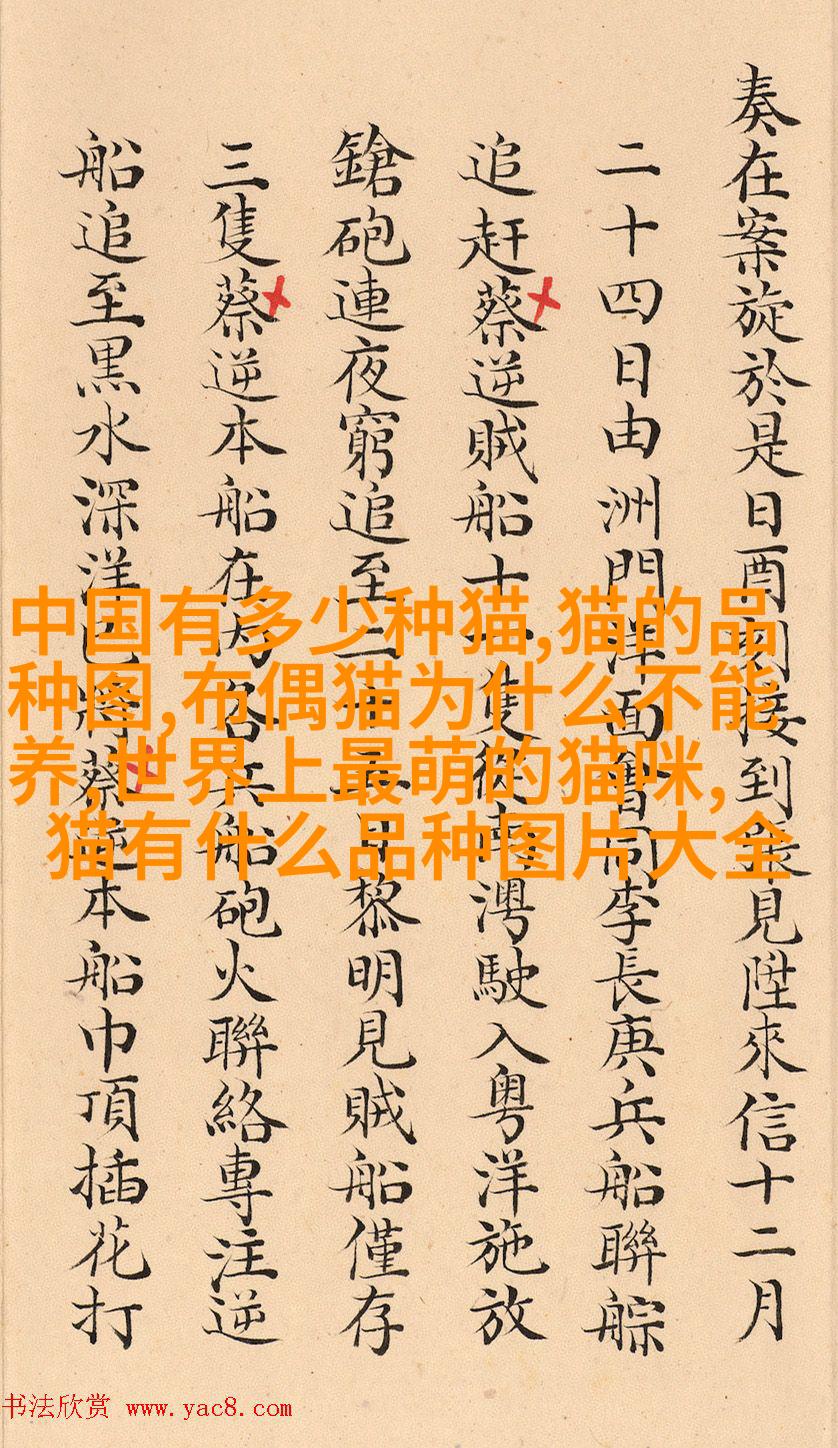 奏在案旋於是日酉刻接到張見陞來信十二月
二十四日由洲門洋面會同李長庚兵船聯䑸
追赶蔡逆賊船十一隻從南澚駛入粵洋施放
鎗砲連夜窮追至二十五日黎明見賊船僅存
三隻蔡逆本船在內各兵船砲火聯絡專注逆
船追至黒水深洋已將蔡逆本船巾頂插花打
中国有多少种猫,猫的品
种图,布偶猫为什么不能
养,世界上最萌的猫咪,
猫有什么品种图片大全
书法欣赏 www.yac8.com